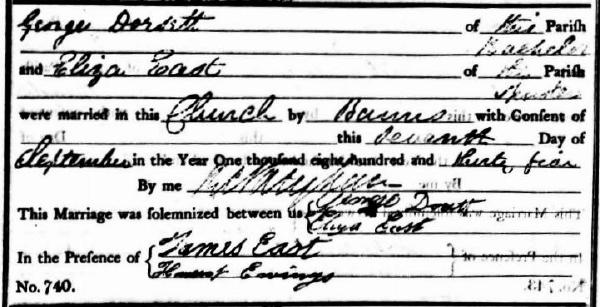 George Dorsett of this Parish
Bachelor
and Eliza East of this Parish
Spinster
were married in this Church by Banns with Consent of
this Seventh Day of
September in the Year One thousand eight hundred and thirty four
By me
This Marriage was solemnized between us George Dorsett
Eliza East
In the Presence of James East
Ewings
No. 740.